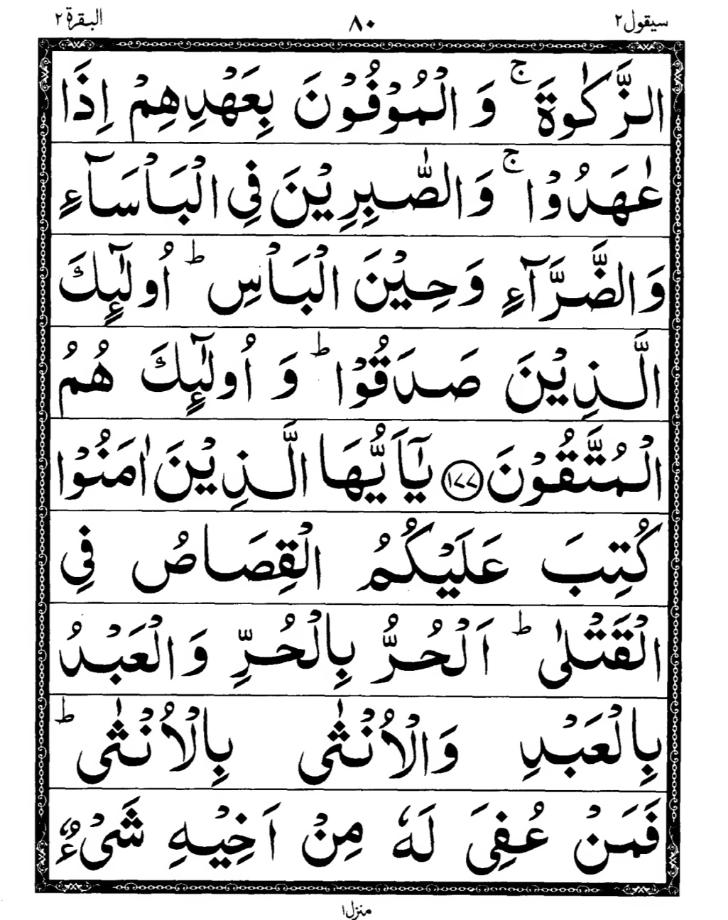 سيقول ٢ ٨٠ البقرة ٢
الزَّكٰوةَ ۚ وَ الْمُوْفُوْنَ بِعَهْدِهِمْ اِذَا
عٰهَدُوْا ۚ وَالصّٰبِرِيْنَ فِى الْبَاْسَآءِ
وَالضَّرَّآءِ وَحِيْنَ الْبَاْسِ ؕ اُولٰٓئِكَ
الَّذِيْنَ صَدَقُوْا ؕ وَ اُولٰٓئِكَ هُمُ
الْمُتَّقُوْنَ ﴿١٧٧﴾ يٰۤاَيُّهَا الَّذِيْنَ اٰمَنُوْا
كُتِبَ عَلَيْكُمُ الْقِصَاصُ فِى
الْقَتْلٰى ؕ اَلْحُرُّ بِالْحُرِّ وَالْعَبْدُ
بِالْعَبْدِ وَالْاُنْثٰى بِالْاُنْثٰى ؕ
فَمَنْ عُفِىَ لَهٗ مِنْ اَخِيْهِ شَىْءٌ
منزل ١